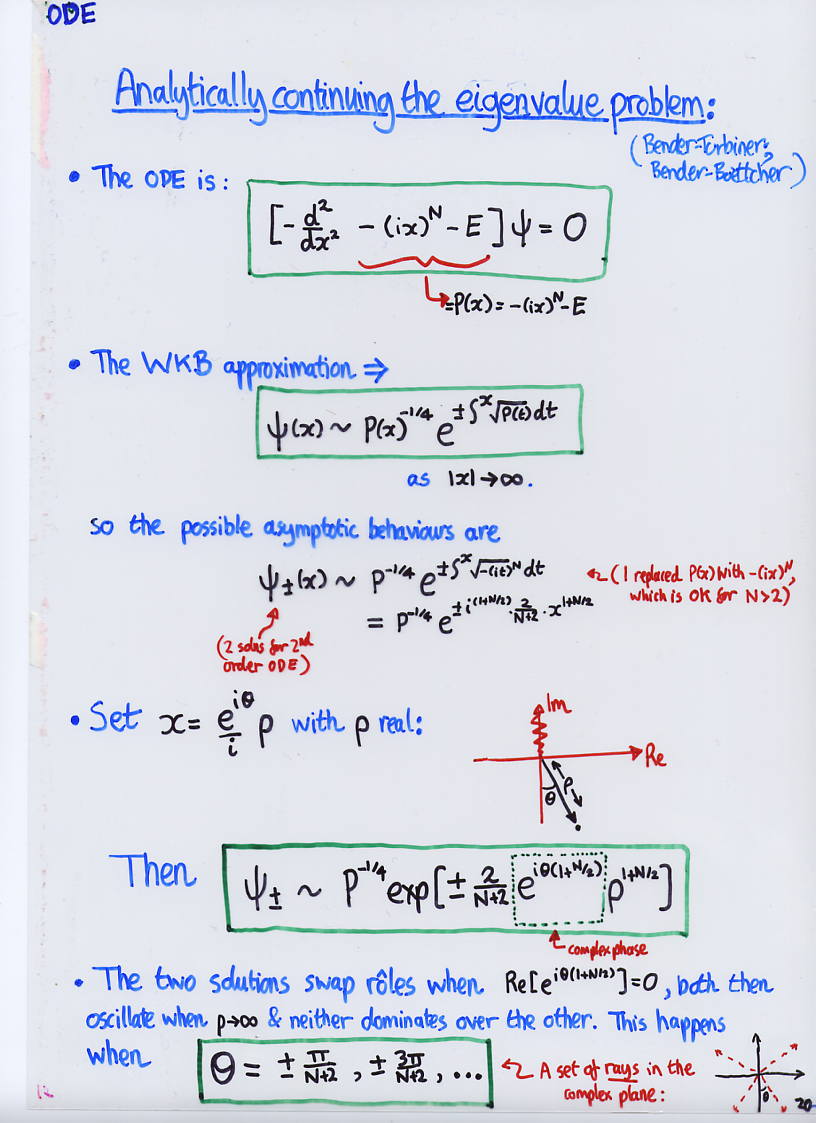 ODE
Analytically continuing the eigenvalue problem:
(Bender-Turbiner,
Bender-Boettcher)
• The ODE is:
[-d²/dx² -(ix)^N - E]ψ = 0
=P(x) = -(ix)^N-E
• The WKB approximation ⇒
ψ(x) ~ P(x)^-1/4 e^±∫^x √P(t) dt
as |x|→∞.
so the possible asymptotic behaviours are
ψ±(x) ~ P^-1/4 e^±∫^x √-(it)^N dt
(I replaced P(x) with -(ix)^N,
which is OK for N>2)
= P^-1/4 e^±i^(1+N/2)·2/N+2·x^1+N/2
(2 solns for 2nd
order ODE)
• Set x= e^iθ/i ρ with ρ real:
Im
Re
θ ρ
Then ψ± ~ P^-1/4 exp[± 2/N+2 e^iθ(1+N/2) ρ^1+N/2]
complex phase
• The two solutions swap rôles when Re[e^iθ(1+N/2)]=0, both then
oscillate when ρ→∞ & neither dominates over the other. This happens
when θ = ± π/N+2, ± 3π/N+2, ...
A set of rays in the
complex plane:
θ
12
20